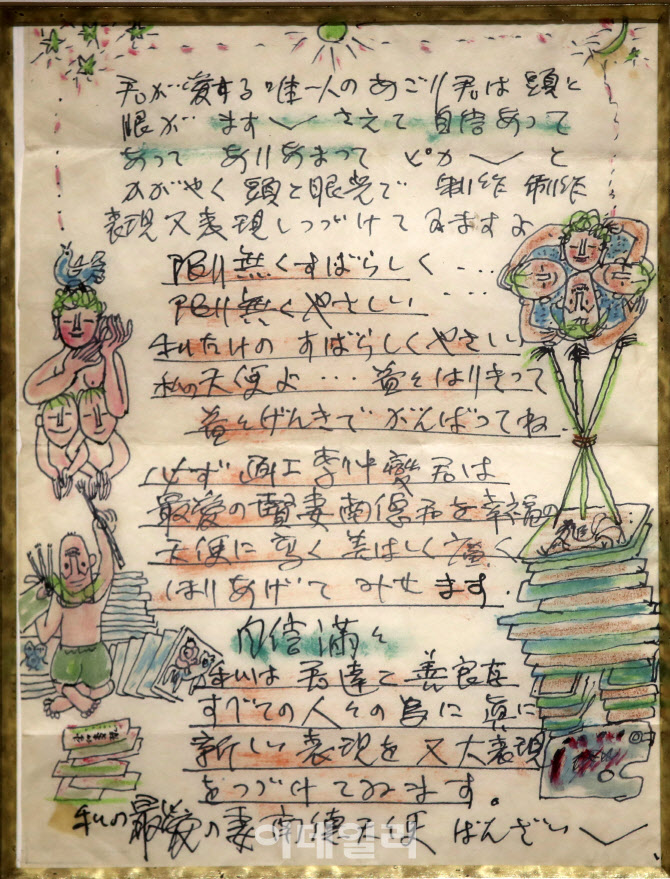 君が愛する唯一人のあごり君は頭と
眼がます〱さえて自信あって
あって ありあまって ピカ〱と
かがやく頭と眼光で 制作 制作
表現又表現しつづけてゐますよ
限り無くすばらしく・・・
限り無くやさしい・・・
私だけのすばらしくやさしい
私の天使よ・・・益々はりきって
益々げんきでがんばってね.
必ず画工李仲燮君は
最愛の賢妻南德君を幸福の
天使に高く美はしく廣く
ほりあげてみせます.
自信滿々
私は君達と善良な
すべての人々の為に眞に
新しい表現を又大表現
をつづけてゐます。
私の最愛の妻南德天使 ばんざい〱
이데일리